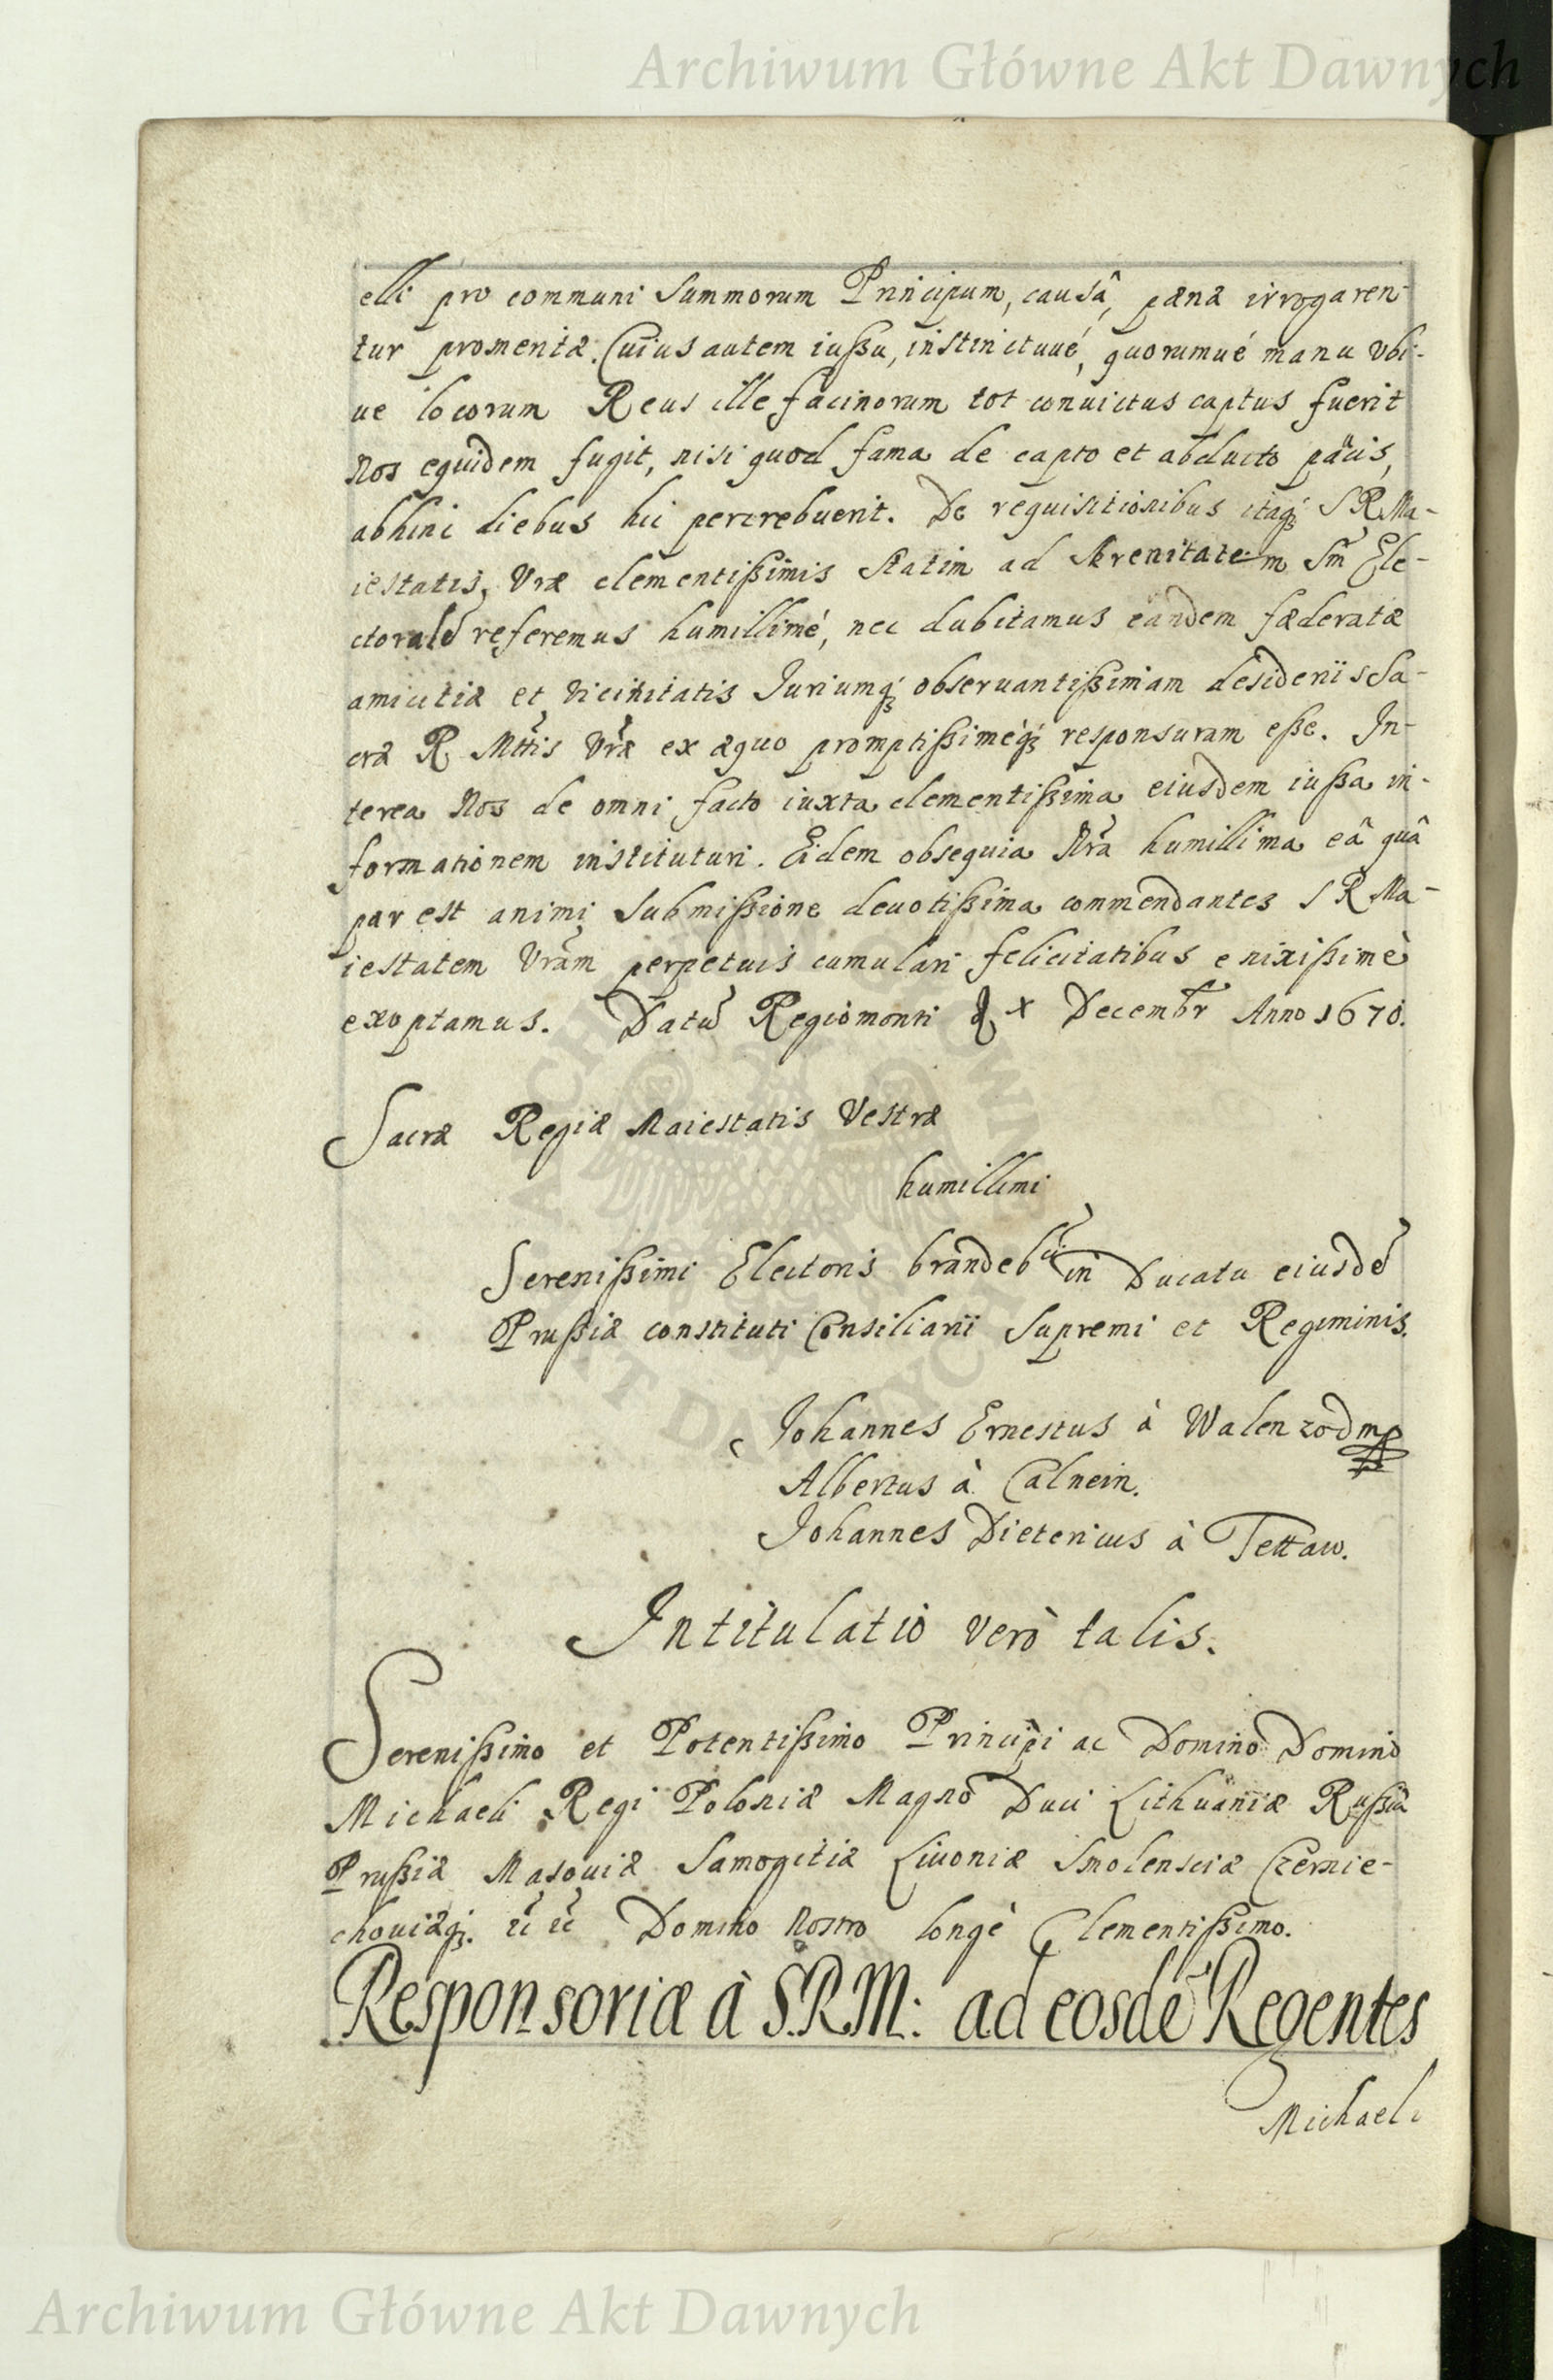 Archiwum Główne Akt Dawnych
elli pro communi Summorum Principum, causâ, pænæ irrogaren-
tur promeritæ. Cuius autem iußu, instinctuué, quorumué manu Vbi-
ue locorum Reus ille facinorum tot conuictus captus fuerit
Nos equidem fugit, nisi quod fama de capto et abducto paucis,
abhinc diebus hic percrebuerit. De requisitionibus itaqꝫ S R Ma-
iestatis, Vræ clementißimis statim ad Serenitatem Sm̃ Ele-
ctoralẽ referemus humillimé, nec dubitamus eandem fæderatæ
amicitiæ et vicinitatis Juriumqꝫ obseruantißimam desideriis Sa-
cræ R Mttis Vræ ex æquo promptißimèqꝫ responsuram eße. In-
terea Nos de omni facto iuxta clementißima eiusdem iußa in-
formationem instituturi. Eidem obsequia Nrã humillima eâ quâ
par est animi submißione deuotißima commendantes S R Ma-
iestatem Vram perpetuis cumulari felicitatibus enixißimè
exoptamus. Datũ Regiomonti d X Decembr Anno 1670.
Sacræ Regiæ Maiestatis Vestræ
humillimi
Serenißimi Electoris brandebci in Ducatu eiusdẽ
Prußiæ constituti Consiliarii Supremi et Regiminis.
Johannes Ernestus à Walenrod mp
Albertus à Calnein.
Johannes Dietericus à Tettaw.
Intitulatio verò talis.
Serenißimo et Potentißimo Principi ac Domino Domino
Michaeli Regi Poloniæ Magno Duci Lithuaniæ Rußiæ
Prußiæ Masouiæ Samogitiæ Liuoniæ Smolensciæ Czernie-
chouiæqꝫ. ꝛc̃ ꝛc̃ Domino Nostro longè Clementißimo.
Responsoriæ à S.R.M: ad eosdẽ Regentes
Michael
ARCHIWUM GŁÓWNE AKT DAWNYCH
Archiwum Główne Akt Dawnych